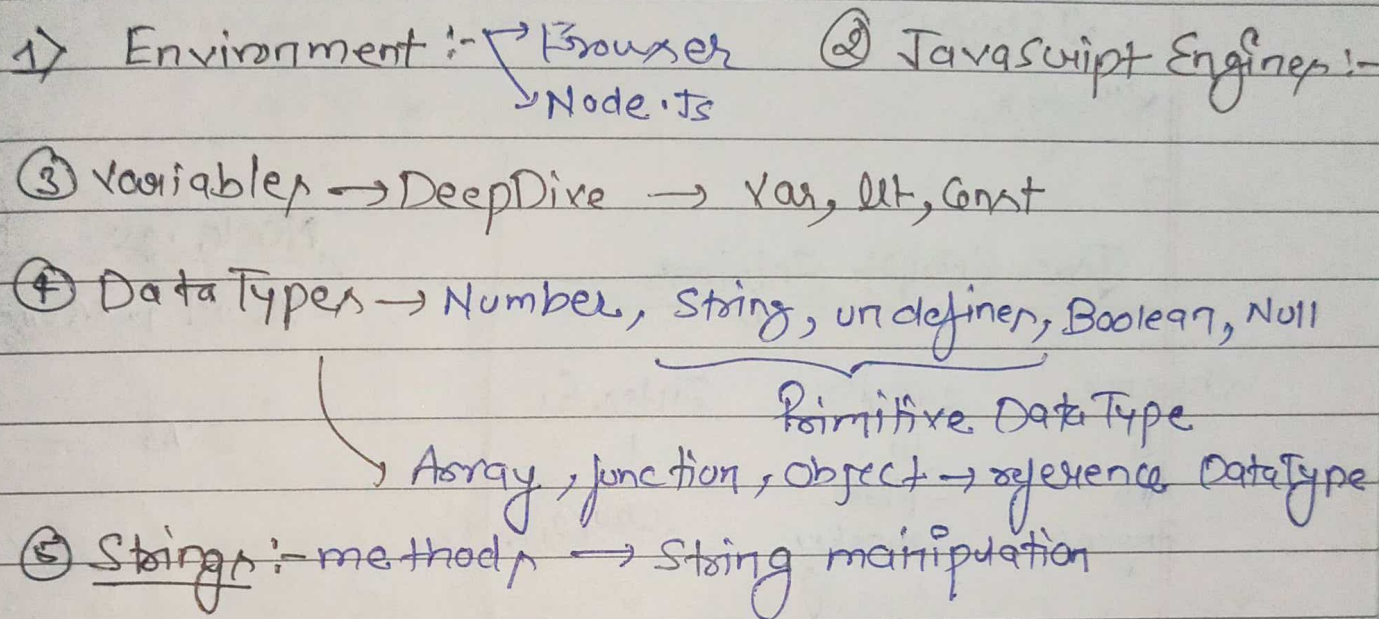 1) Environment :- Browser ② Javascript Engines :-
Node.Js
③ Variables → DeepDive → Var, let, Const
④ Data Types → Number, String, undefines, Boolean, Null
Primitive Data Type
Array, function, object → reference DataType
⑤ Strings :- methods → String manipulation